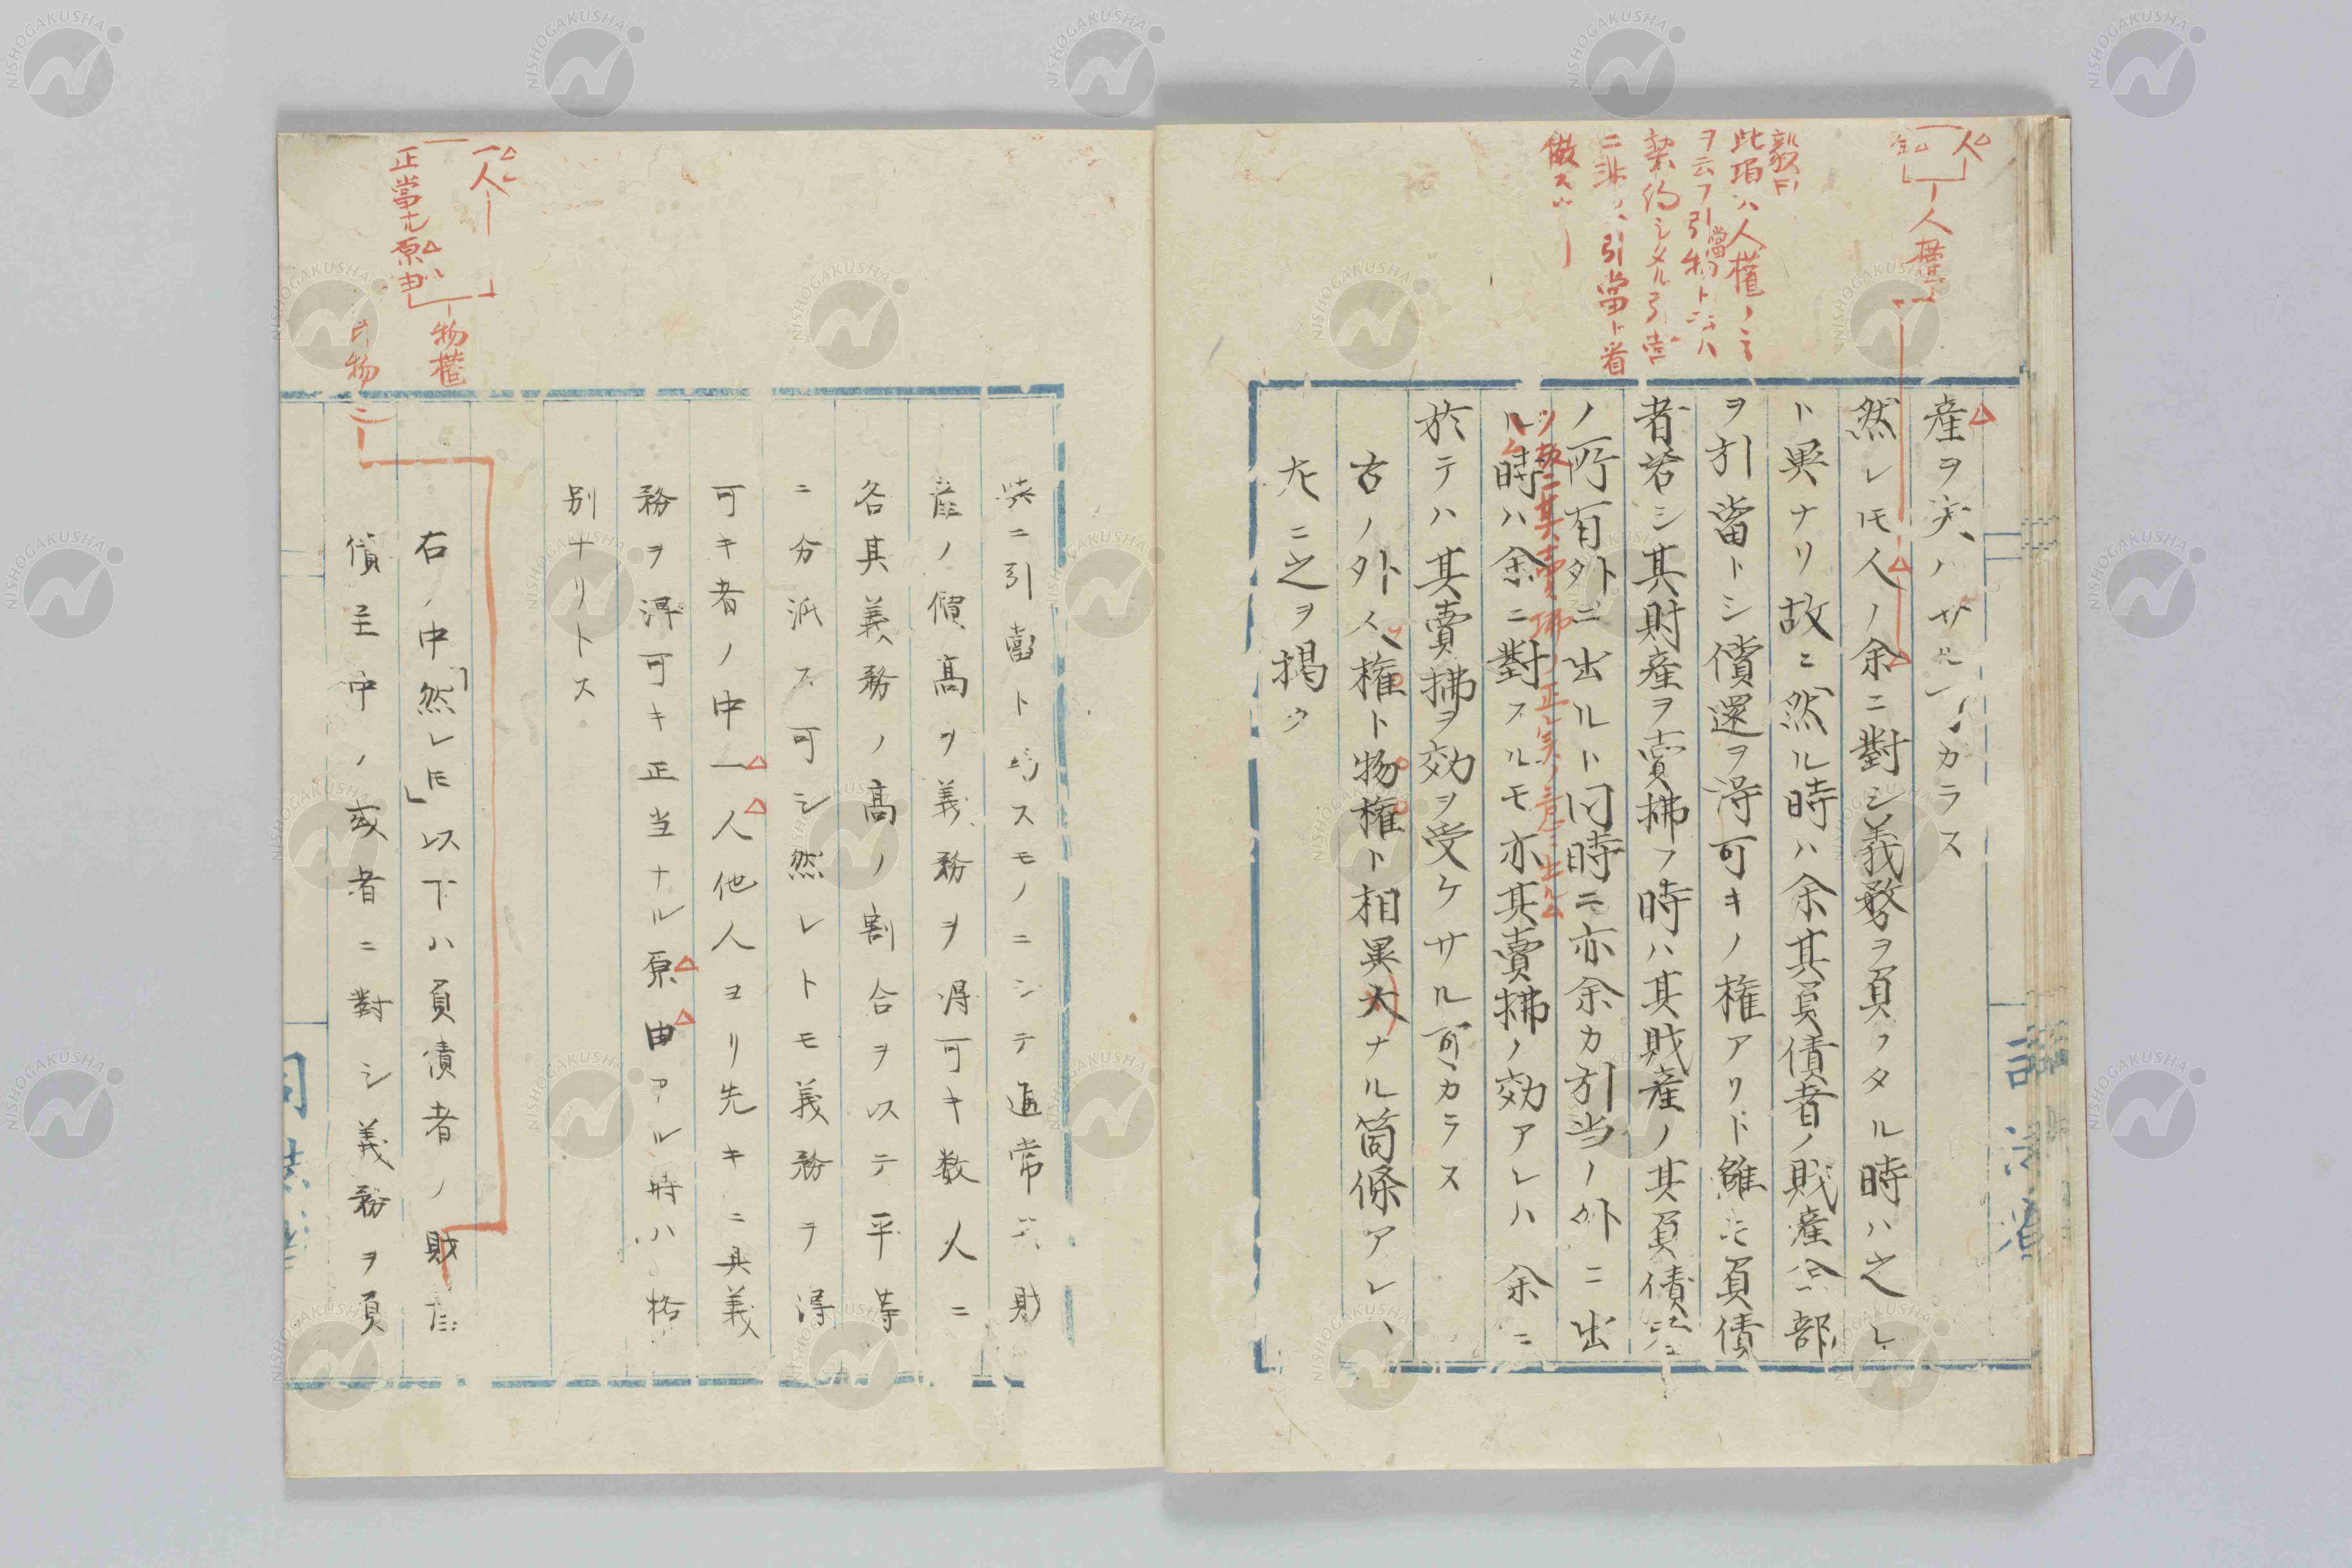 人
余
人權
毅曰
此項ハ人權ノミ
ヲ云フ引當物トハ
契約シタル引當
ニ非ス引當ト看
做ス
産ヲ失ハサル可カラス
然レモ人ノ余ニ對シ義務ヲ負フタル時ハ之レ
ト異ナリ故ニ然ル時ハ余其負債者ノ財産全部
ヲ引當トシ償還ヲ得可キノ権アリト雖モ負債
者若シ其財産ヲ賣拂フ時ハ其財産ノ其負債者
ノ所有外ニ出ルト同時ニ亦余カ引当ノ外ニ出
ル時ハ余ニ對スルモ亦其賣拂ノ効アレハ余ニ
於テハ其賣拂ヲ効ヲ受ケサル可カラス
古ノ外人権ト物権ト相異大ナル箇條アレハ
左ニ之ヲ掲ク
一人
正當ナル原由
物權
ニ引當トスモノニシテ通常ハ財
産ノ價高ヲ義務ヲ得可キ数人ニ
各其義務ノ高ノ割合ヲ以テ平等
ニ分派ス可シ然レトモ義務ヲ得
可キ者ノ中一人他人ヨリ先キニ其義
務ヲ得可キ正当ナル原由アル時ハ格
別ナリトス
右ノ中「然レ𪜈」以下ハ負債者ノ財産
債主中ノ或者ニ對シ義務ヲ負
NISHOGAKUSHA